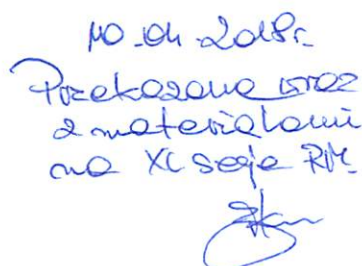 10.04.2018r.
Przekazano wraz
z materiałami
na XL sesję RM.